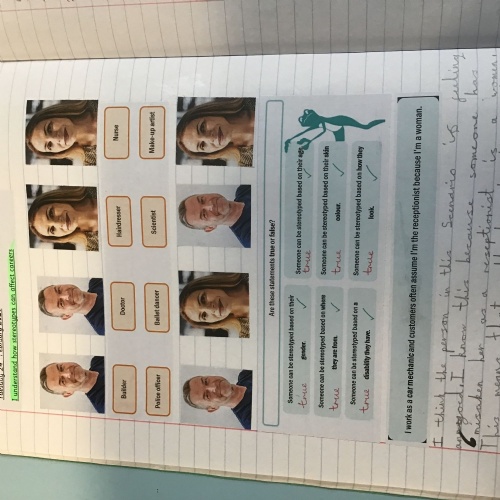 I understand how stereotypes can affect careers
Builder
Doctor
Hairdresser
Nurse
Police officer
Ballet dancer
Scientist
Make-up artist
Are these statements true or false?
Someone can be stereotyped based on their
gender.
true
Someone can be stereotyped based on their age.
true
Someone can be stereotyped based on where
they are from.
true
Someone can be stereotyped based on their skin
colour.
true
Someone can be stereotyped based on a
disability they have.
true
Someone can be stereotyped based on how they
look.
true
I work as a car mechanic and customers often assume I'm the receptionist because I'm a woman.
I think the person in this scenario is feeling
I know this because someone has
mistaken her as a receptionist
is a woman